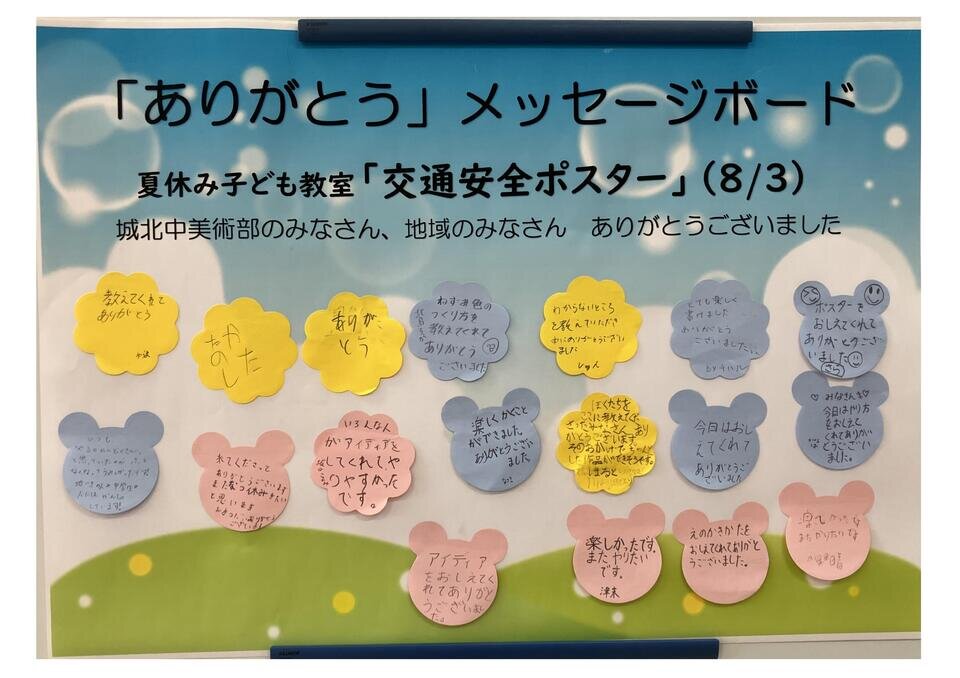 「ありがとう」メッセージボード
夏休み子ども教室「交通安全ポスター」（8/3）
城北中美術部のみなさん、地域のみなさん　ありがとうございました
教えてくれて
ありがとう
やた
たのし
ありが
とう
ねずみ色の
つくり方を
教えてくれて
ありがとう
ございました
わからないところ
を教えていただき
ありがとうござい
ました
しゅん
とても楽しく
書けました
ありがとう
ございました。
ポスターを
おしえてくれて
ありがとうござ
いました
さら
来てくださって
ありがとうございます
また夏休みきたい
と思います
いろんなん
かアイディアを
してくれてや
りやすかった
です。
楽しくかくこと
ができました。
ありがとうござい
ました。
ぼくたちを
ここに教えてくだ
さったみなさん、あり
がとうございます。
そのおかげでちゃんと
した作品ができそうです。
今日はおし
えてくれて
ありがとうご
ざいました
みなさん
今日はやり方
をおしえて
くれてありがと
うござい
ました。
アイディア
をおしえてく
れてありがと
うございまし
た。
楽しかったです。
またやりたい
です。
えのかきかたを
おしえてくれてありがと
うございました。
楽しかった
またやりたいです